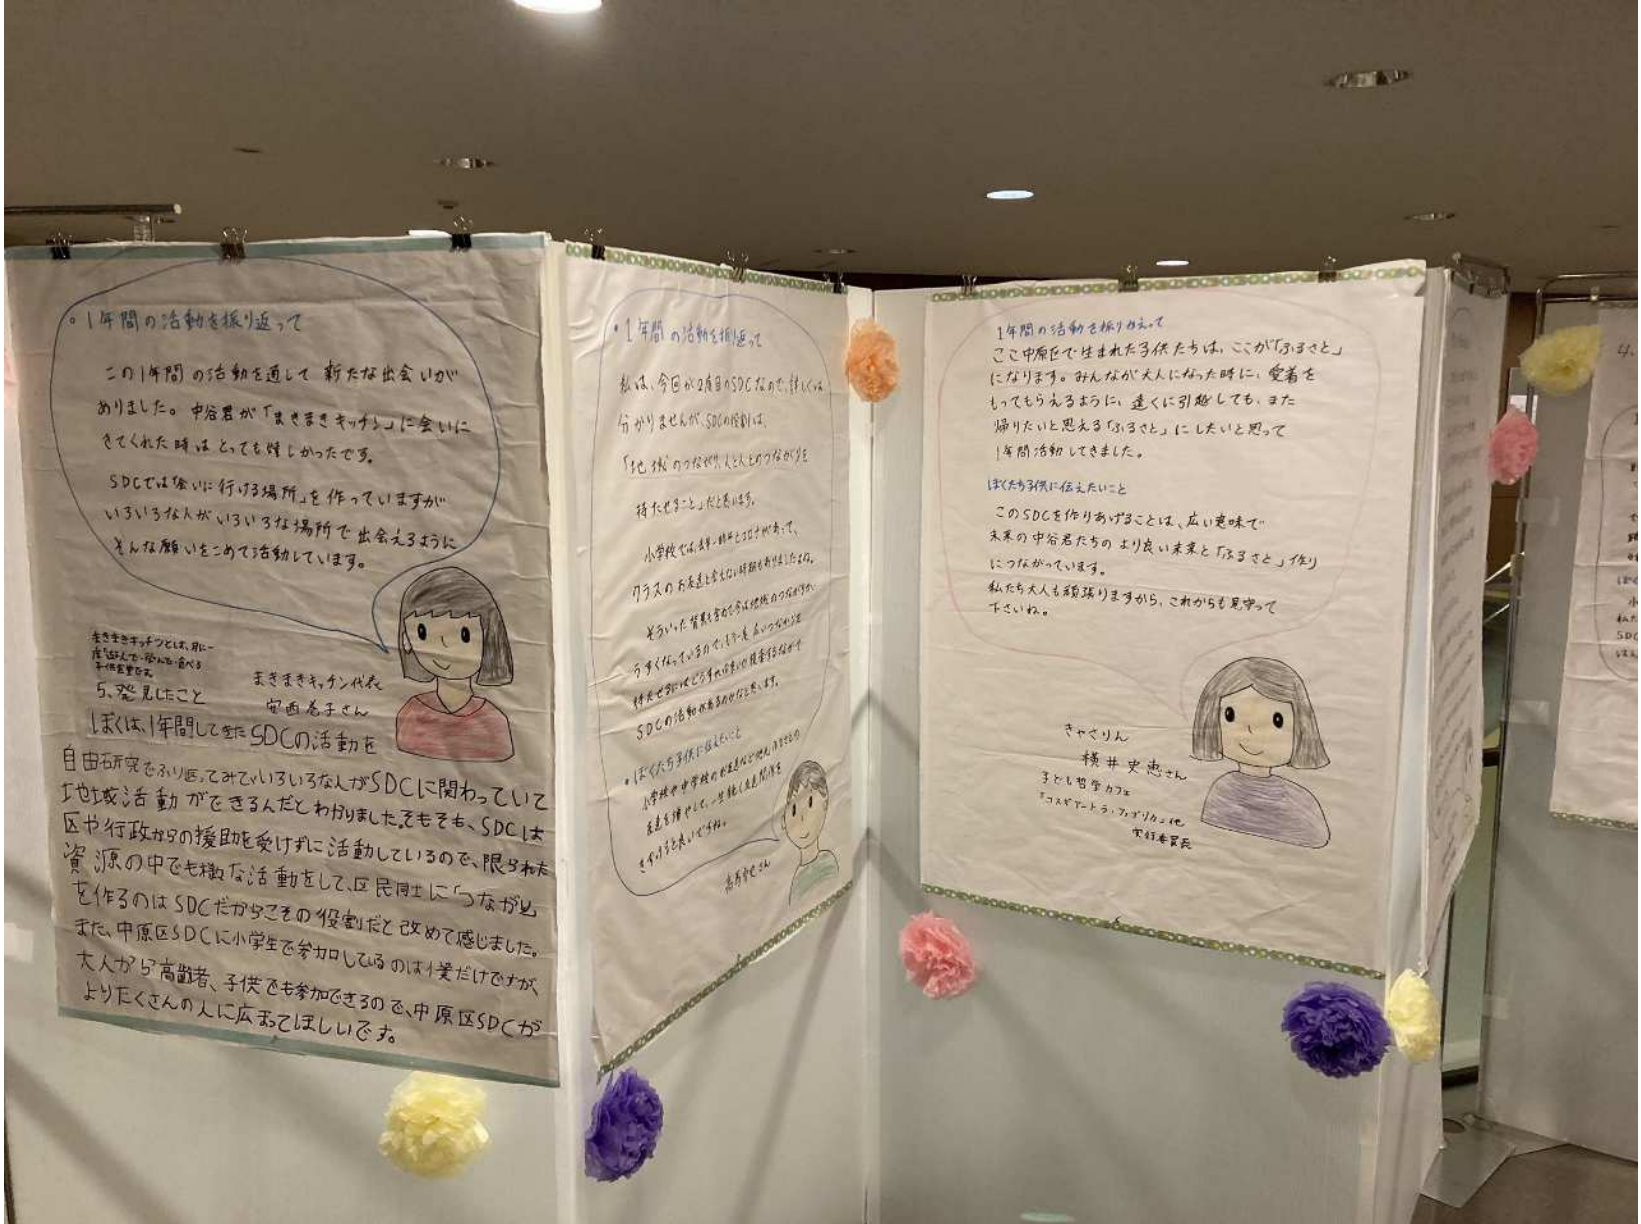 。1年間の活動を振り返って
この1年間の活動を通して新たな出会いが
ありました。中谷君が「まきまきキッチン」に会いに
きてくれた時はとっても嬉しかったです。
SDCでは「会いに行ける場所」を作っていますが
いろいろな人がいろいろな場所で出会えるように
そんな願いをこめて活動しています。
まきまきキッチンとは、月に一
度「遊んで・学んで・食べる
子供食堂です
まきまきキッチン代表
安西巻子さん
5、発見したこと
ぼくは、1年間してきたSDCの活動を
自由研究でふり返ってみて、いろいろな人がSDCに関わっていて
地域活動ができるんだとわかりました。そもそも、SDCは
区や行政からの援助を受けずに活動しているので、限られた
資源の中でも様々な活動をして、区民同士に「つながり」
を作るのはSDCだからこその役割だと改めて感じました。
また、中原区SDCに小学生で参加しているのは僕だけですが、
大人から高齢者、子供でも参加できるので、中原区SDCが
よりたくさんの人に広まってほしいです。
・1年間の活動を振り返って
私は、今回が2度目のSDCなので、詳しくは
分かりませんが、SDCの役割は、
「地域のつながり、人と人とのつながりを
持たせること」だと思います。
小学校では、去年・昨年とコロナがあって、
クラスのお友達と会えない時期もありましたよね。
そういった背景も含めて今は地域のつながりが
うすくなっているので、もう一度広いつながりを
持たせるにはどうすれば良いか模索するなかで
SDCの活動があるのかなと思います。
・ぼくたち子供に伝えたいこと
小学校や中学校のお友達など
友達を増やして、一生続く友達関係を
きずけると良いですね。
1年間の活動を振りかえって
ここ中原区で生まれた子供たちは、ここが「ふるさと」
になります。みんなが大人になった時に、愛着を
もってもらえるように、遠くに引越しても、また
帰りたいと思える「ふるさと」にしたいと思って
1年間活動してきました。
ぼくたち子供に伝えたいこと
このSDCを作りあげることは、広い意味で
未来の中谷君たちのより良い未来と「ふるさと」作り
につながっています。
私たち大人も頑張りますから、これからも見守って
下さいね。
きゃさりん
横井史恵さん
子ども哲学カフェ
「コスギアートラ・ファブリカ」他
実行委員長
4.